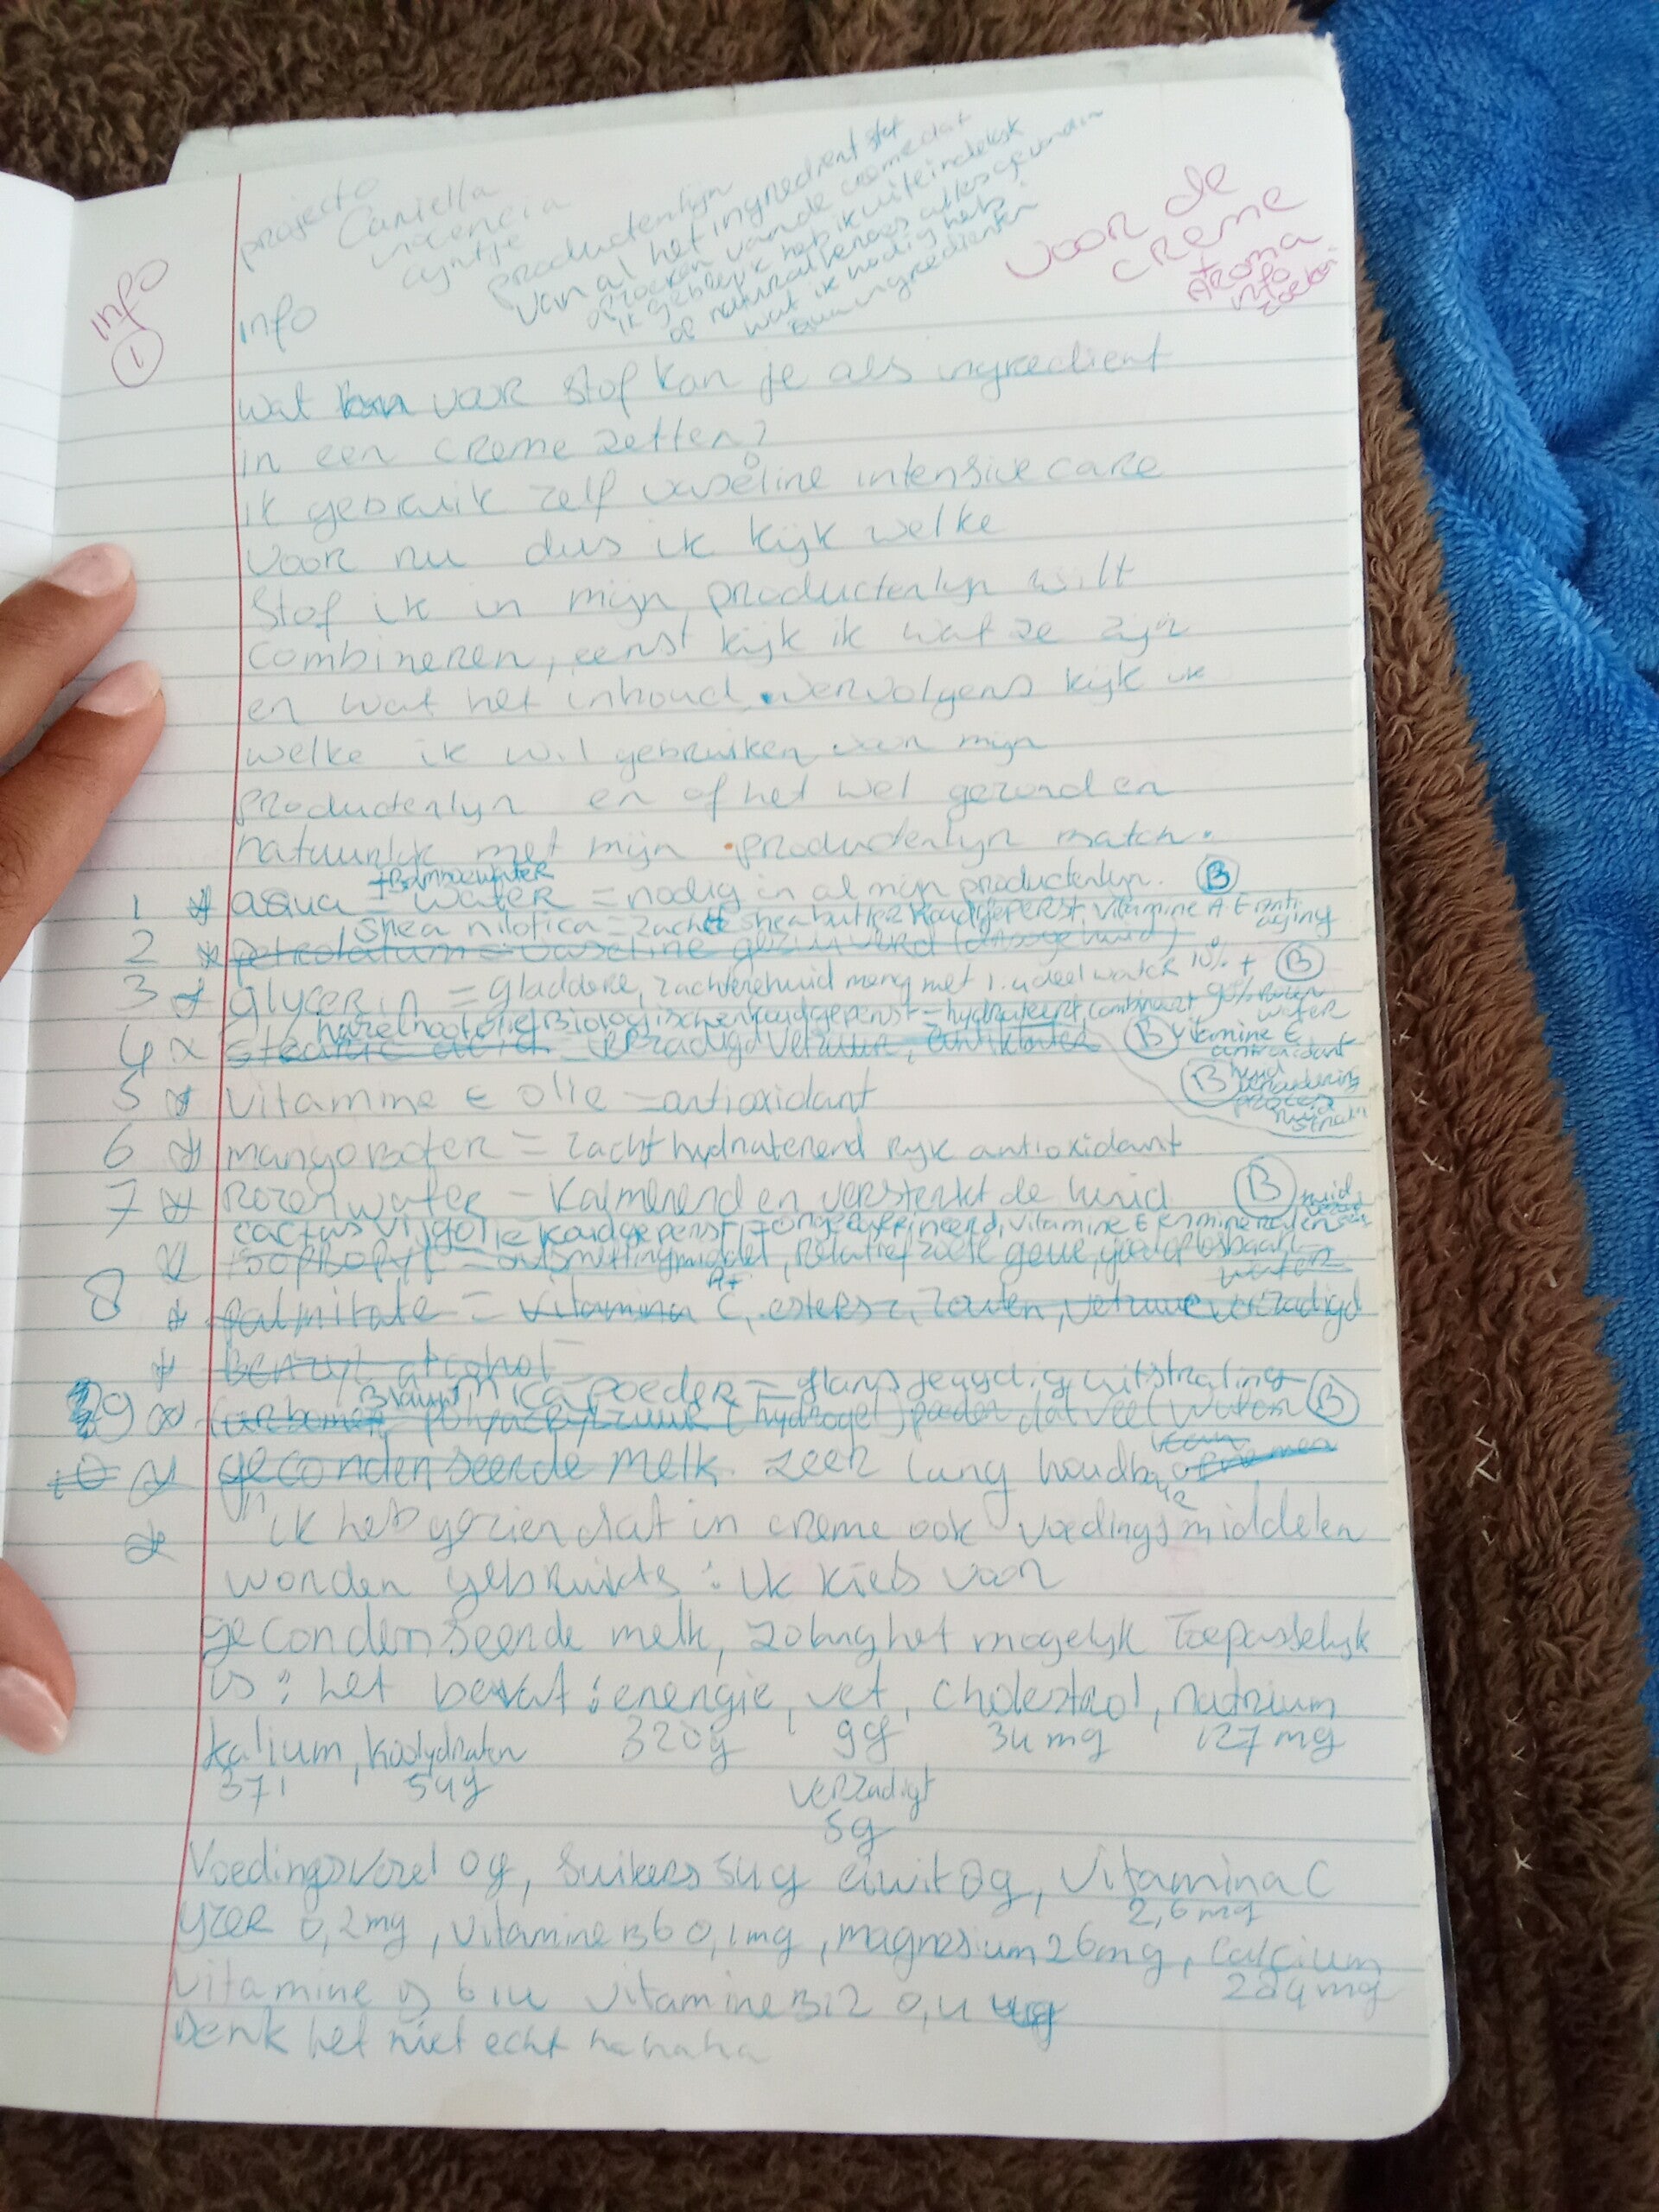 projecto
Caniella
vicencia
cyntje
productenlijn
van al het ingredient stof
ik gebleek heb ik uiteindelijk
op naturalheroes alles gevonden
wat ik nodig heb
qua ingredienten
voor de
creme
Aroma
info
zoeken
info
1
info
wat voor stof kan je als ingredient
in een creme zetten?
ik gebruik zelf vaseline intensive care
voor nu dus ik kijk welke
stof ik in mijn productenlijn wilt
combineren, eerst kijk ik wat ze zijn
en wat het inhoud. vervolgens kijk ik
welke ik wil gebruiken voor mijn
productenlijn en of het wel gezond en
natuurlijk met mijn productenlijn match.
+Bamboewater
1 aqua = water = nodig in al mijn productenlijn. B
shea nilotica = zachte sheabutter koudgeperst, vitamine A. E anti aging
2 petrolatum = vaseline gezuiverd (droge huid)
3 glycerin = gladdere, zachterehuid meng met 1.4 deel water 10% + B
90% rozen water
hazelnootolie Biologischenkoudgeperst = hydrateert, combineert
4 x stearic acid verzadigd vetzuur, B vitamine E
antioxidant
huid
B veroudering
proces
huid
5 vitamine E olie = antioxidant
6 mangoboter = zacht hydraterend rijk antioxidant
7 Rozenwater - Kalmerend en versterkt de huid B
cactusvijgolie koudgeperst = ongeraffineerd, vitamine E en mineralen
isopropyl = ontsmettingmiddel, relatief zoete geur, goedoplosbaar
water
A+
8 palmitate = vitamina C, esters, zouten, vetzuur verzadigd
Benzyl alcohol =
mica poeder = glans jeugdig uitstraling
9 carbomer polyacrylzuur (hydrogel) poeder dat veel water B
kan opnemen
10 gecondenseerde melk. zeer lang houdbaar
ik heb gezien dat in creme ook voedingsmiddelen
worden gebruikts: ik kies voor
gecondenseerde melk, zolang het mogelijk toepasselijk
is: het bevat: energie, vet, cholestrol, natrium
320g 9g 34mg 127mg
kalium, koolydraten
371 54g
verzadigt
5g
Voedingsvezel 0g, suikers 54g eiwit 8g, vitamina C
2,6 mg
yzer 0,2mg, vitamine B6 0,1mg, magnesium 26mg, Calcium
284mg
vitamine D 6 iu vitamine B12 0,4 ug
Denk het niet echt hahaha